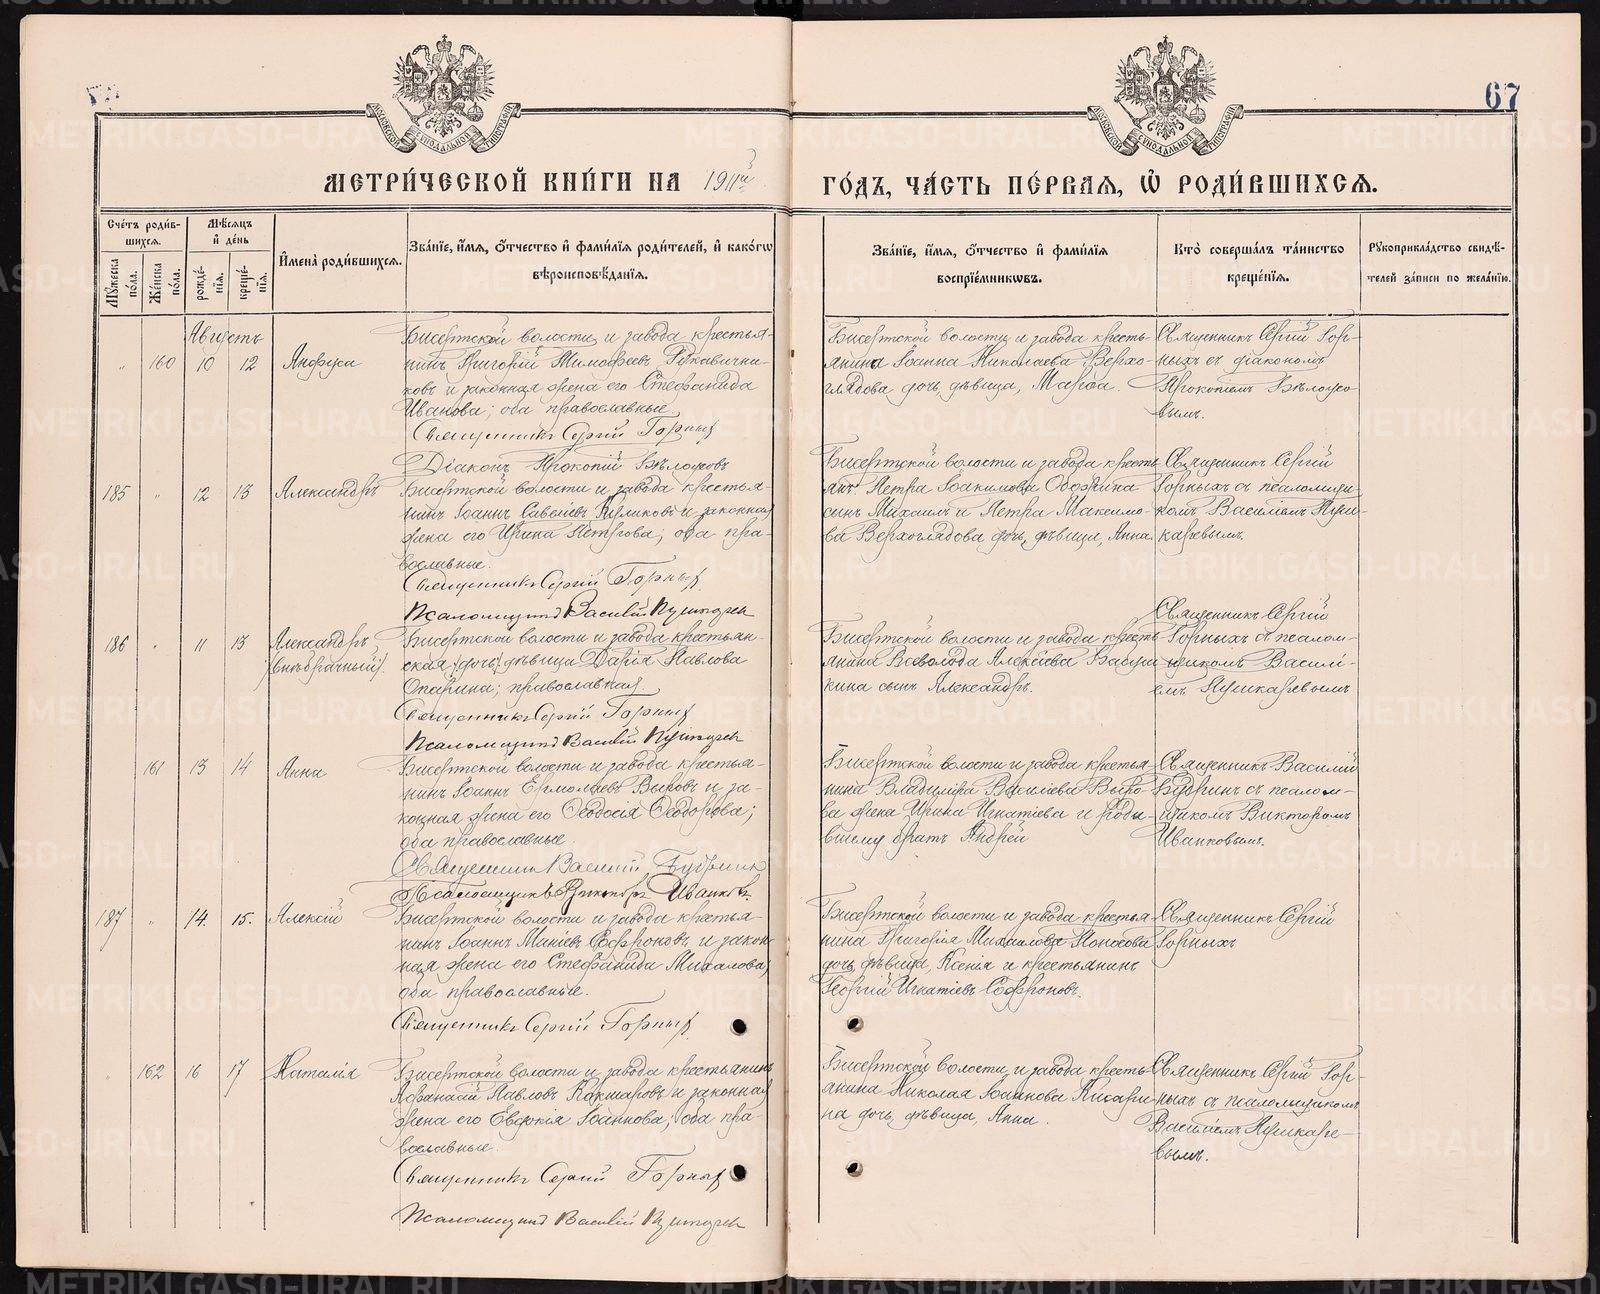 67
МОСКОВСКОЙ СѴНОДАЛЬНОЙ ТИПОГРАФІИ
МОСКОВСКОЙ СѴНОДАЛЬНОЙ ТИПОГРАФІИ
МЕТРИ́ЧЕСКОЙ КНИ́ГИ НА 1911й
ГО́ДЪ, ЧА́СТЬ ПЕ́РВАЯ, Ѡ҆ РОДИ́ВШИХСЯ.
Сче́тъ роди́в-
шихся.
Мѣ́сяцъ
и҆ де́нь
Мꙋ́жеска по́ла.
Же́нска по́ла.
рожде́-
нїя.
креще́-
нїя.
И҆мена̀ роди́вшихся.
Зва́нїе, и҆́мя, ѻ҆́тчество и҆ фами́лїя роди́телей, и҆ како́гѡ
вѣроисповѣ́данїя.
Зва́нїе, и҆́мя, ѻ҆́тчество и҆ фами́лїя
воспрїе́мникѡвъ.
Кто̀ соверша́лъ та́инство
креще́нїя.
Рꙋкоприкла́дство свидѣ́-
телей за́писи по жела́нїю.
Августъ
" 160 10 12 Анфуса
Бисертской волости и завода крестья-
нинъ Григорій Тимофеевъ Рукавични-
ковъ и законная жена его Стефанида
Иванова; оба православные
Священникъ Сергій Горныхъ
Діаконъ Прокопій Бѣлоусовъ
Бисертской волости и завода кресть-
янина Іоанна Николаева Верхо-
глядова дочь, дѣвица, Марѳа.
Священникъ Сергій Гор-
ныхъ съ діакономъ
Прокопіемъ Бѣлоусо-
вымъ.
185 " 12 13 Александръ
Бисертской волости и завода крестья-
нинъ Іоаннъ Савелiевъ и законная
жена его Ирина Петрова; оба пра-
вославные.
Священникъ Сергій Горныхъ
Псаломщикъ Василій Пушкарев
Бисертской волости и завода кресть-
ян. Петра Іоакимова
сынъ Михаилъ и Петра Максимо-
ва Верхоглядова дочь, дѣвица, Анна.
Священникъ Сергій
Горныхъ съ псаломщи-
комъ Василіемъ Пуш-
каревымъ.
186 " 11 13 Александръ
(внѣбрачный).
Бисертской волости и завода крестьян-
ская дочь, дѣвица Дарія Павлова
Опарина; православная.
Священникъ Сергій Горныхъ
Псаломщикъ Василій Пушкарев
Бисертской волости и завода кресть-
янина Всеволода Алексіева
кина сынъ Александръ.
Священникъ Сергій
Горныхъ съ псалом-
щикомъ Василі-
емъ Пушкаревымъ
161 13 14 Анна
Бисертской волости и завода крестья-
нинъ Іоаннъ Ермолаевъ Выровъ и за-
конная жена его Ѳеодосія Ѳеодорова;
оба православные.
Священник Василий Будрин
Псаломщикъ Викторъ Иванковъ.
Бисертской волости и завода крестья-
нина Владиміра Василіева Выро-
ва жена Ирина Игнатіева и роди-
вшему братъ Андрей
Священникъ Василій
Будринъ съ псалом-
щикомъ Викторомъ
Иванковымъ.
187 " 14. 15. Алексій
Бисертской волости и завода крестья-
нинъ Іоаннъ Миніевъ Софроновъ и закон-
ная жена его Стефанида Михайлова;
оба православные.
Священникъ Сергій Горныхъ
Бисертской волости и завода крестья-
нина Григорія Михайлова Поносова
дочь, дѣвица, Ксенія и крестьянинъ
Георгій Игнатіевъ Софроновъ.
Священникъ Сергій
Горныхъ
" 162 16 17 Наталія
Бисертской волости и завода крестьянинъ
Аѳанасій Павловъ Кокшаровъ и законная
жена его Евдокія Іоаннова; оба пра-
вославные.
Священникъ Сергий Горныхъ
Псаломщикъ Василій Пушкарев
Бисертской волости и завода кресть-
янина Николая Іоаннова Писари-
на дочь, дѣвица, Анна.
Священникъ Сергій Гор-
ныхъ съ псаломщикомъ
Василіемъ Пушкаре-
вымъ.
METRIKI.GASO-URAL.RU